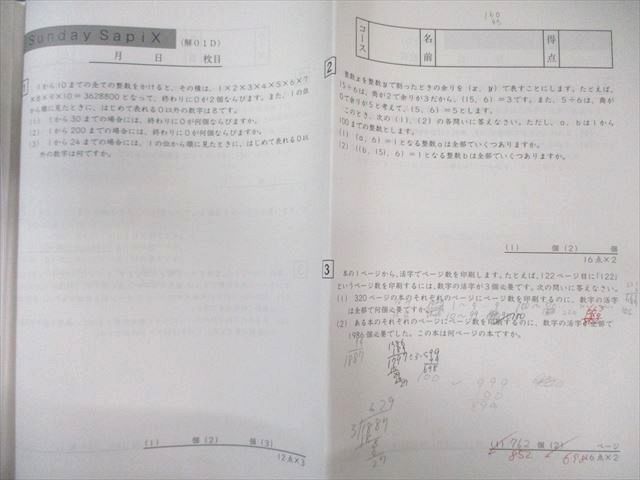 Sunday SapiX (解01D)
月 日 枚目
1 1から10までの全ての整数をかけると、その積は、1×2×3×4×5×6×7
×8×9×10=3628800となって、終わりに0が2個ならびます。また、1の位
から順に見たときに、はじめて表れる0以外の数字は8です。
(1) 1から30までの場合には、終わりに0が何個ならびますか。
(2) 1から200までの場合には、終わりに0が何個ならびますか。
(3) 1から24までの場合には、1の位から順に見たときに、はじめて表れる0以
外の数字は何ですか。
(1) 個 (2) 個 (3)
12点×3
160
コース 名前 得点
2
整数xを整数yで割ったときの余りを(x,y)で表すことにします。たとえば、
15÷6は、商が2で余りが3だから、(15,6)=3です。また、5÷6は、商が
0で余りが5と考えて、(5,6)=5とします。
このとき、次の(1)、(2)の各問いに答えなさい。ただし、a、bは1から
100までの整数とします。
(1) (a,6)=1となる整数aは全部でいくつありますか。
(2) ((b,15),6)=1となる整数bは全部でいくつありますか。
(1) 個 (2) 個
16点×2
3 本の1ページから、活字でページ数を印刷します。たとえば、122ページ目に「122」
というページ数を印刷するには、数字の活字が3個必要です。次の問いに答えなさい。
(1) 320ページの本のそれぞれのページにページ数を印刷するのに、数字の活字
は全部で何個必要ですか。
(2) ある本のそれぞれのページにページ数を印刷するのに、数字の活字が全部で
1986個必要でした。この本は何ページの本ですか。
1887
100
999
100
899
629
3 1887
27
(1) 762 個 (2) ページ
852
16点×2